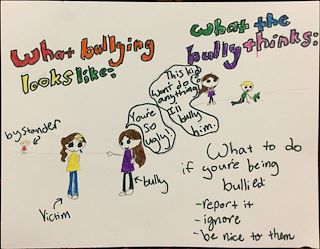 What bullying
looks like:
What the
bully thinks:
This kid
won't do
anything,
I'll
bully
him.
You're
so
ugly!
bystander
Victim
bully
What to do
if you're being
bullied:
- report it
- ignore
- be nice to them